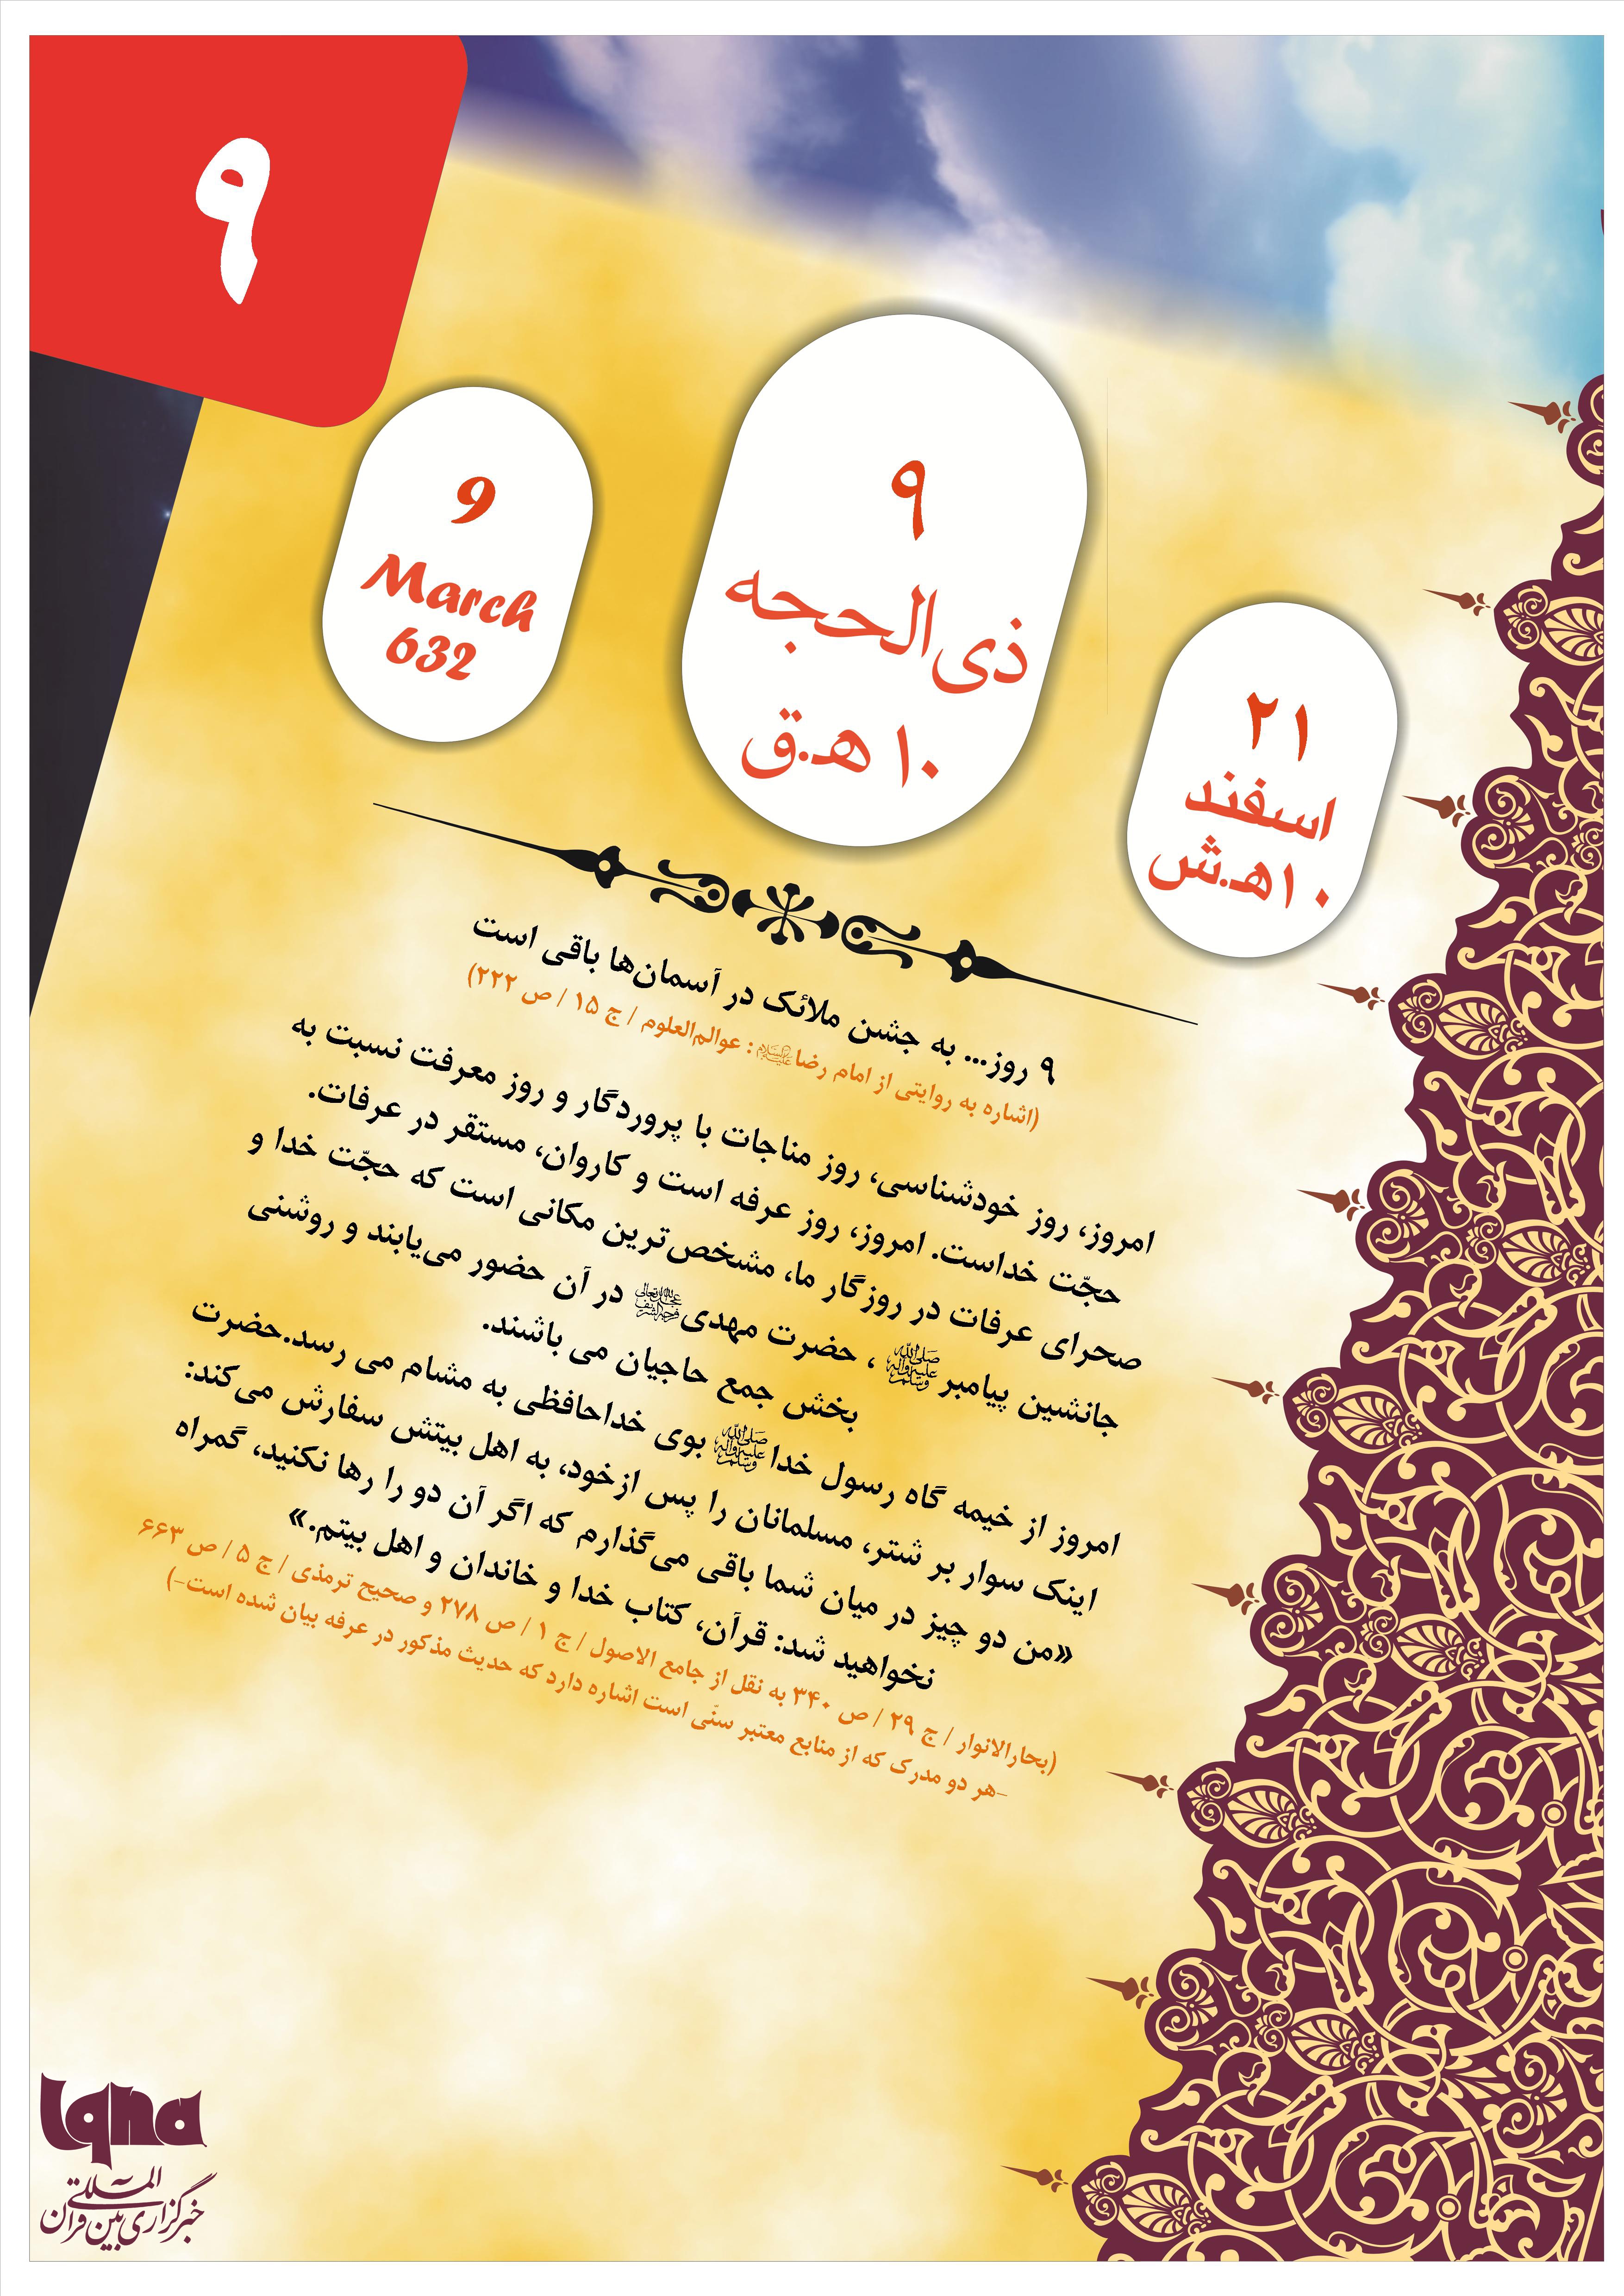 ۹
9
March
632
۹
ذی‌الحجه
۱۰ هـ.ق
۲۱
اسفند
۱۰هـ.ش
۹ روز... به جشن ملائک در آسمان‌ها باقی است
(اشاره به روایتی از امام رضا علیه‌السلام : عوالم‌العلوم / ج ۱۵ / ص ۲۲۲)
امروز، روز خودشناسی، روز مناجات با پروردگار و روز معرفت نسبت به
حجّت خداست. امروز، روز عرفه است و کاروان، مستقر در عرفات.
صحرای عرفات در روزگار ما، مشخص‌ترین مکانی است که حجّت خدا و
جانشین پیامبر صلی الله علیه وآله وسلم ، حضرت مهدی عجل الله تعالی فرجه الشریف در آن حضور می‌یابند و روشنی
بخش جمع حاجیان می باشند.
امروز از خیمه گاه رسول خدا صلی الله علیه وآله وسلم بوی خداحافظی به مشام می رسد.حضرت
اینک سوار بر شتر، مسلمانان را پس ازخود، به اهل بیتش سفارش می‌کند:
«من دو چیز در میان شما باقی می‌گذارم که اگر آن دو را رها نکنید، گمراه
نخواهید شد: قرآن، کتاب خدا و خاندان و اهل بیتم.»
(بحارالانوار / ج ۲۹ / ص ۳۴۰ به نقل از جامع الاصول / ج ۱ / ص ۲۷۸ و صحیح ترمذی / ج ۵ / ص ۶۶۳
-هر دو مدرک که از منابع معتبر سنّی است اشاره دارد که حدیث مذکور در عرفه بیان شده است-)
Iqna
خبرگزاری بین المللی قرآن